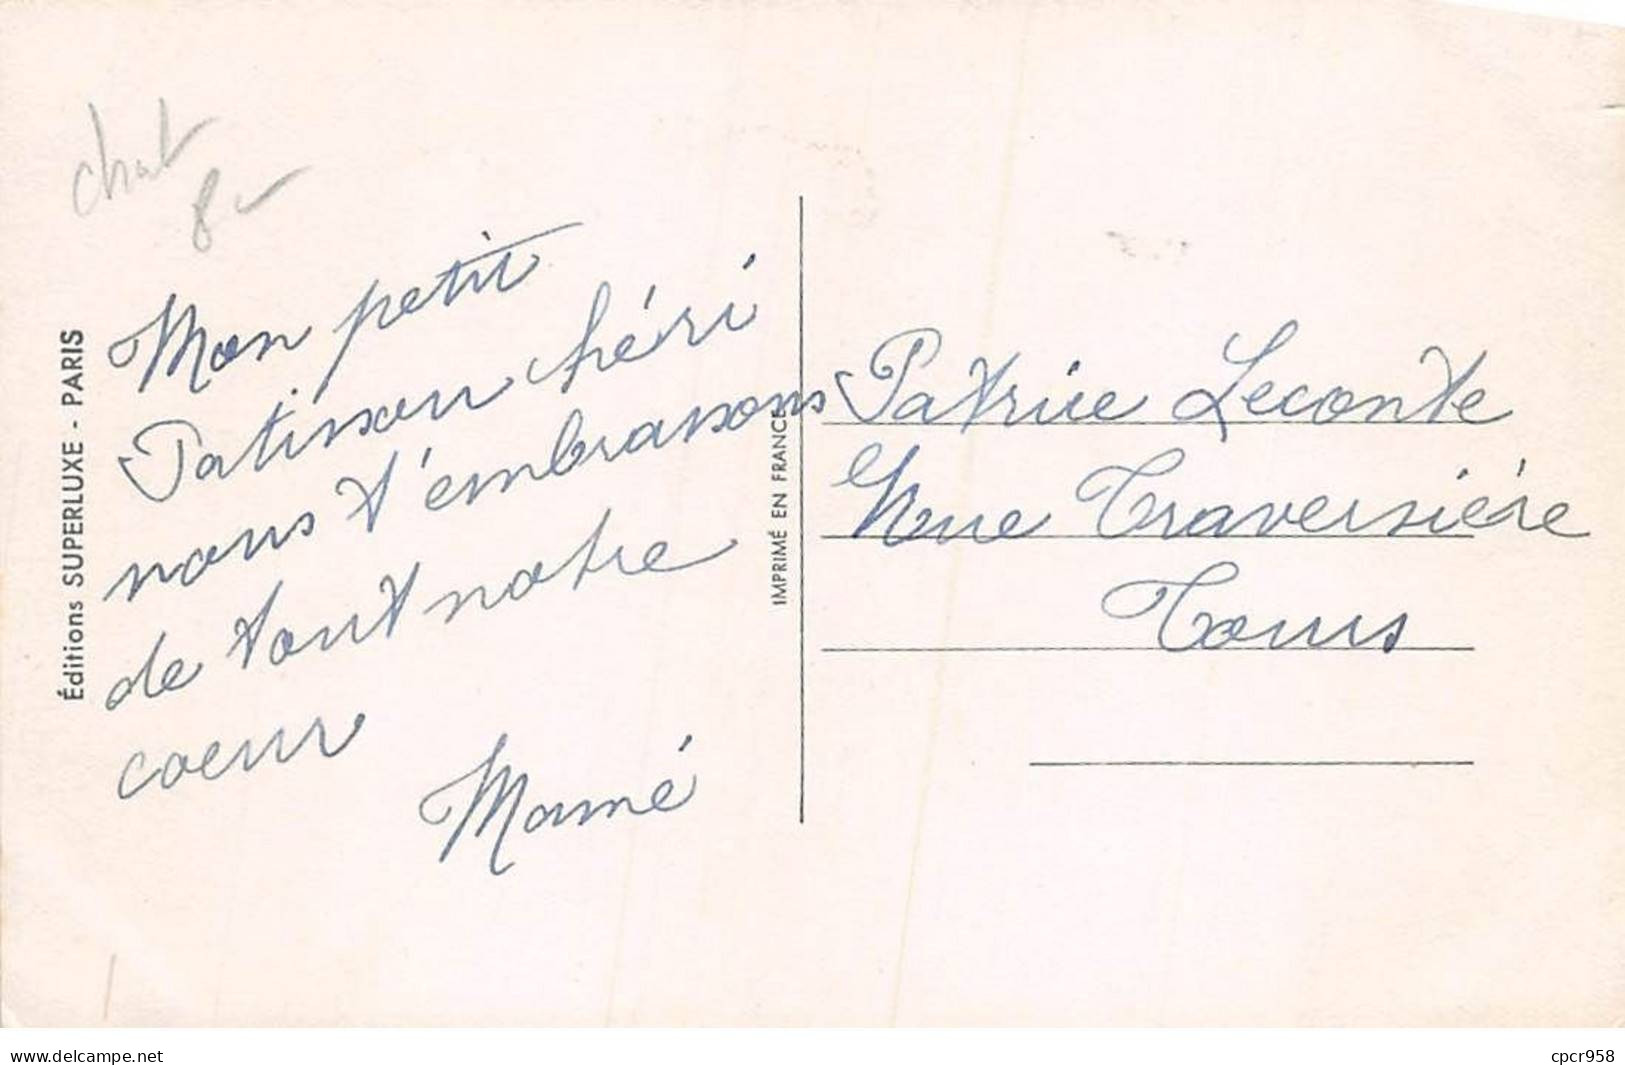 chat
8
Mon petit
Patisson chéri
nous t'embrassons
de tout notre
coeur
Mamé
Éditions SUPERLUXE - PARIS
IMPRIMÉ EN FRANCE
Patrice Leconte
rue Traversière
Tours
www.delcampe.net
cpcr958